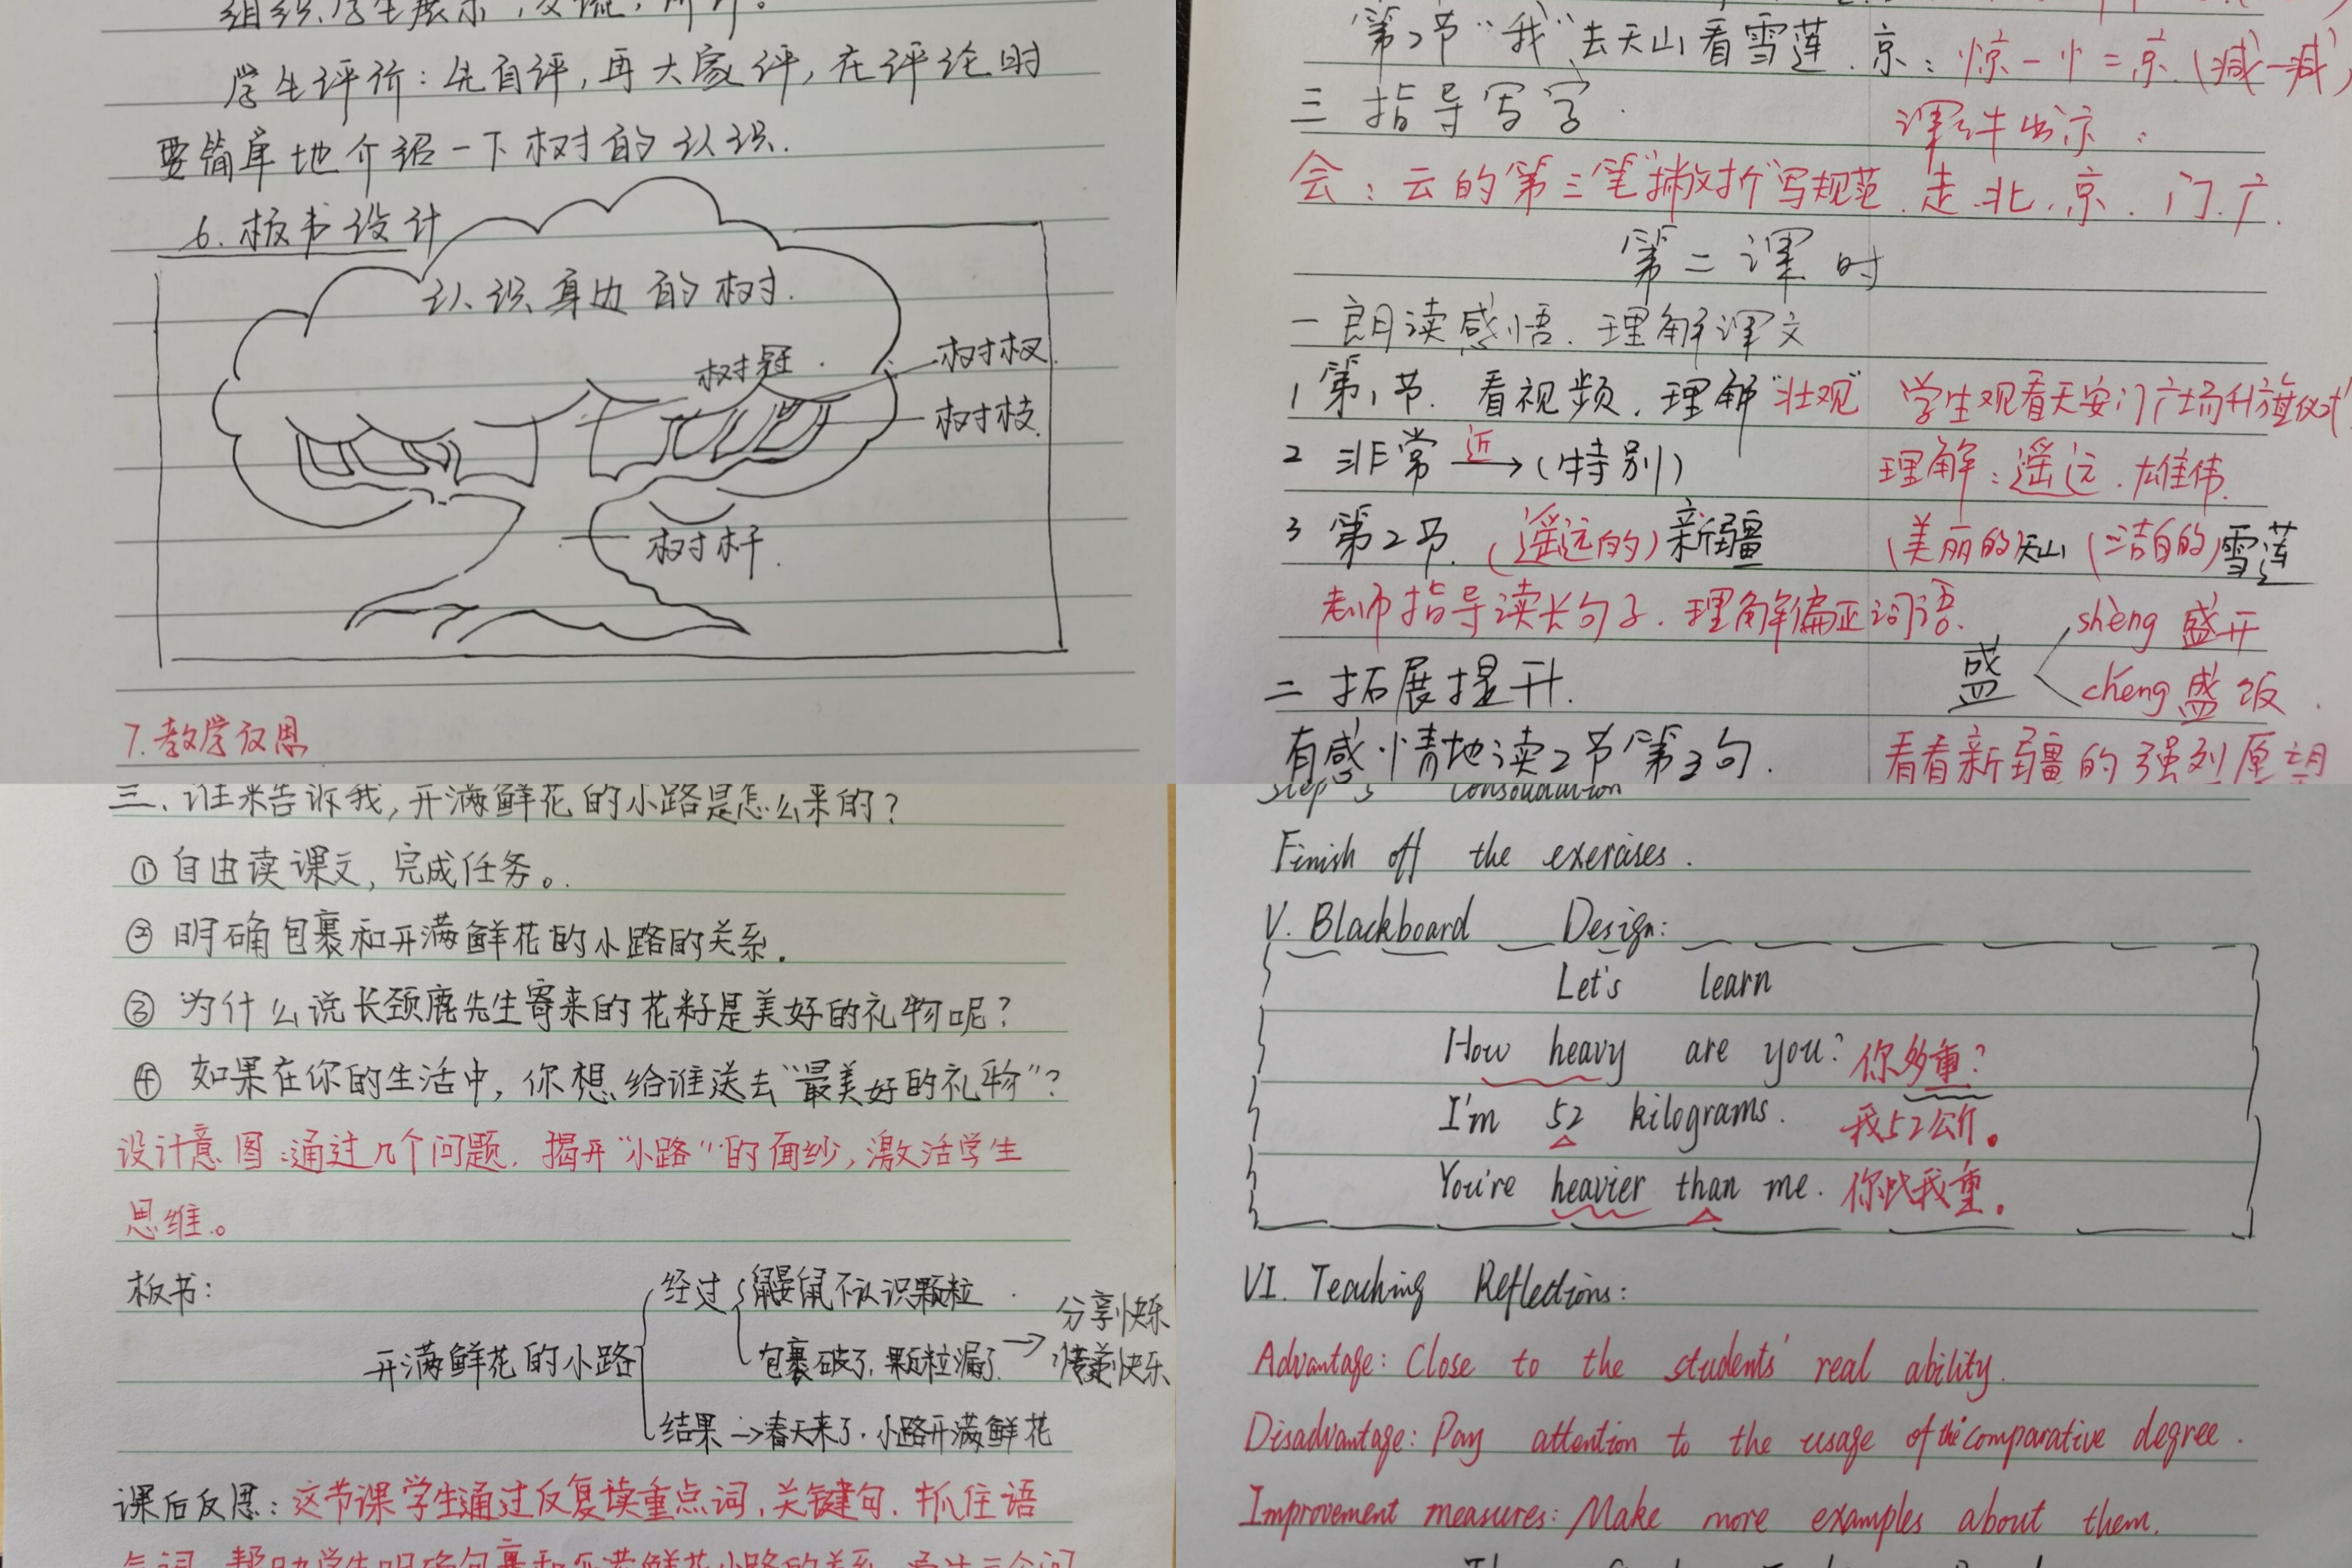 组织学生展示,交流,评价。
学生评价:先自评,再大家评,在评论时
要简单地介绍一下树的认识.
6.板书设计
认识身边的树.
树冠.
树杈
树枝
树杆.
7.教学反思
第2节“我”去天山看雪莲.京:惊-忄=京.(减一减)
三 指导写字.
课件出示:
会:云的第三笔“撇折”写规范.走.北.京.门.广.
第二课时
一 朗读感悟.理解课文
1 第1节. 看视频.理解“壮观” 学生观看天安门广场升旗仪式
2 非常 近→(特别) 理解:遥远.雄伟.
3 第2节.(遥远的)新疆 (美丽的)天山 (洁白的)雪莲
老师指导读长句子.理解偏正词语.
盛 shèng 盛开
chéng 盛饭.
二 拓展提升.
有感情地读2节第3句. 看看新疆的强烈愿望
三、谁来告诉我,开满鲜花的小路是怎么来的?
①自由读课文,完成任务。
②明确包裹和开满鲜花的小路的关系.
③为什么说长颈鹿先生寄来的花籽是美好的礼物呢?
④如果在你的生活中,你想给谁送去“最美好的礼物”?
设计意图:通过几个问题.揭开“小路”的面纱,激活学生
思维。
板书:
开满鲜花的小路
经过 鼹鼠不认识颗粒
包裹破了,颗粒漏了. → 分享快乐
传递快乐
结果→春天来了.小路开满鲜花
课后反思:这节课学生通过反复读重点词,关键句.抓住语
Step 5 Consolidation
Finish off the exercises.
V. Blackboard Design:
Let's learn
How heavy are you? 你多重?
I'm 52 kilograms. 我52公斤。
You're heavier than me. 你比我重。
VI. Teaching Reflections:
Advantage: Close to the students' real ability.
Disadvantage: Pay attention to the usage of the comparative degree.
Improvement measures: Make more examples about them.